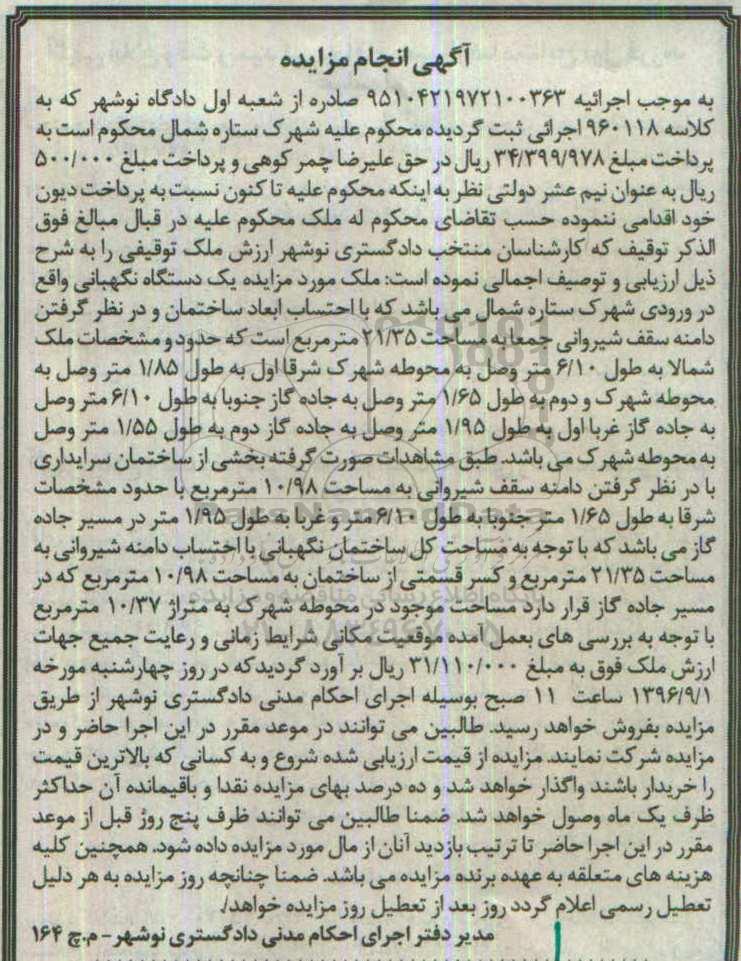 آگهی انجام مزایده
به موجب اجرائیه ۹۵۱۰۴۲۱۹۷۲۱۰۰۳۶۳ صادره از شعبه اول دادگاه نوشهر که به
کلاسه ۹۶۰۱۱۸ اجرائی ثبت گردیده محکوم علیه شهرک ستاره شمال محکوم است به
پرداخت مبلغ ۳۴/۳۹۹/۹۷۸ ریال در حق علیرضا چمر کوهی و پرداخت مبلغ ۵۰۰/۰۰۰
ریال به عنوان نیم عشر دولتی نظر به اینکه محکوم علیه تا کنون نسبت به پرداخت دیون
خود اقدامی ننموده حسب تقاضای محکوم له ملک محکوم علیه در قبال مبالغ فوق
الذکر توقیف که کارشناسان منتخب دادگستری نوشهر ارزش ملک توقیفی را به شرح
ذیل ارزیابی و توصیف اجمالی نموده است: ملک مورد مزایده یک دستگاه نگهبانی واقع
در ورودی شهرک ستاره شمال می باشد که با احتساب ابعاد ساختمان و در نظر گرفتن
دامنه سقف شیروانی جمعا به مساحت ۲۱/۳۵ مترمربع است که حدود و مشخصات ملک
شمالا به طول ۶/۱۰ متر وصل به محوطه شهرک شرقا اول به طول ۱/۸۵ متر وصل به
محوطه شهرک و دوم به طول ۱/۶۵ متر وصل به جاده گاز جنوبا به طول ۶/۱۰ متر وصل
به جاده گاز غربا اول به طول ۱/۹۵ متر وصل به جاده گاز دوم به طول ۱/۵۵ متر وصل
به محوطه شهرک می باشد. طبق مشاهدات صورت گرفته بخشی از ساختمان سرایداری
با در نظر گرفتن دامنه سقف شیروانی به مساحت ۱۰/۹۸ مترمربع با حدود مشخصات
شرقا به طول ۱/۶۵ متر جنوبا به طول ۶/۱۰ متر و غربا به طول ۱/۹۵ متر در مسیر جاده
گاز می باشد که با توجه به مساحت کل ساختمان نگهبانی با احتساب دامنه شیروانی به
مساحت ۲۱/۳۵ مترمربع و کسر قسمتی از ساختمان به مساحت ۱۰/۹۸ مترمربع که در
مسیر جاده گاز قرار دارد مساحت موجود در محوطه شهرک به متراژ ۱۰/۳۷ مترمربع
با توجه به بررسی های بعمل آمده موقعیت مکانی شرایط زمانی و رعایت جمیع جهات
ارزش ملک فوق به مبلغ ۳۱/۱۱۰/۰۰۰ ریال بر آورد گردیدکه در روز چهارشنبه مورخه
۱۳۹۶/۹/۱ ساعت ۱۱ صبح بوسیله اجرای احکام مدنی دادگستری نوشهر از طریق
مزایده بفروش خواهد رسید. طالبین می توانند در موعد مقرر در این اجرا حاضر و در
مزایده شرکت نمایند. مزایده از قیمت ارزیابی شده شروع و به کسانی که بالاترین قیمت
را خریدار باشند واگذار خواهد شد و ده درصد بهای مزایده نقدا و باقیمانده آن حداکثر
ظرف یک ماه وصول خواهد شد. ضمنا طالبین می توانند ظرف پنج روز قبل از موعد
مقرر در این اجرا حاضر تا ترتیب بازدید آنان از مال مورد مزایده داده شود. همچنین کلیه
هزینه های متعلقه به عهده برنده مزایده می باشد. ضمنا چنانچه روز مزایده به هر دلیل
تعطیل رسمی اعلام گردد روز بعد از تعطیل روز مزایده خواهد/.
مدیر دفتر اجرای احکام مدنی دادگستری نوشهر - م.چ ۱۶۴